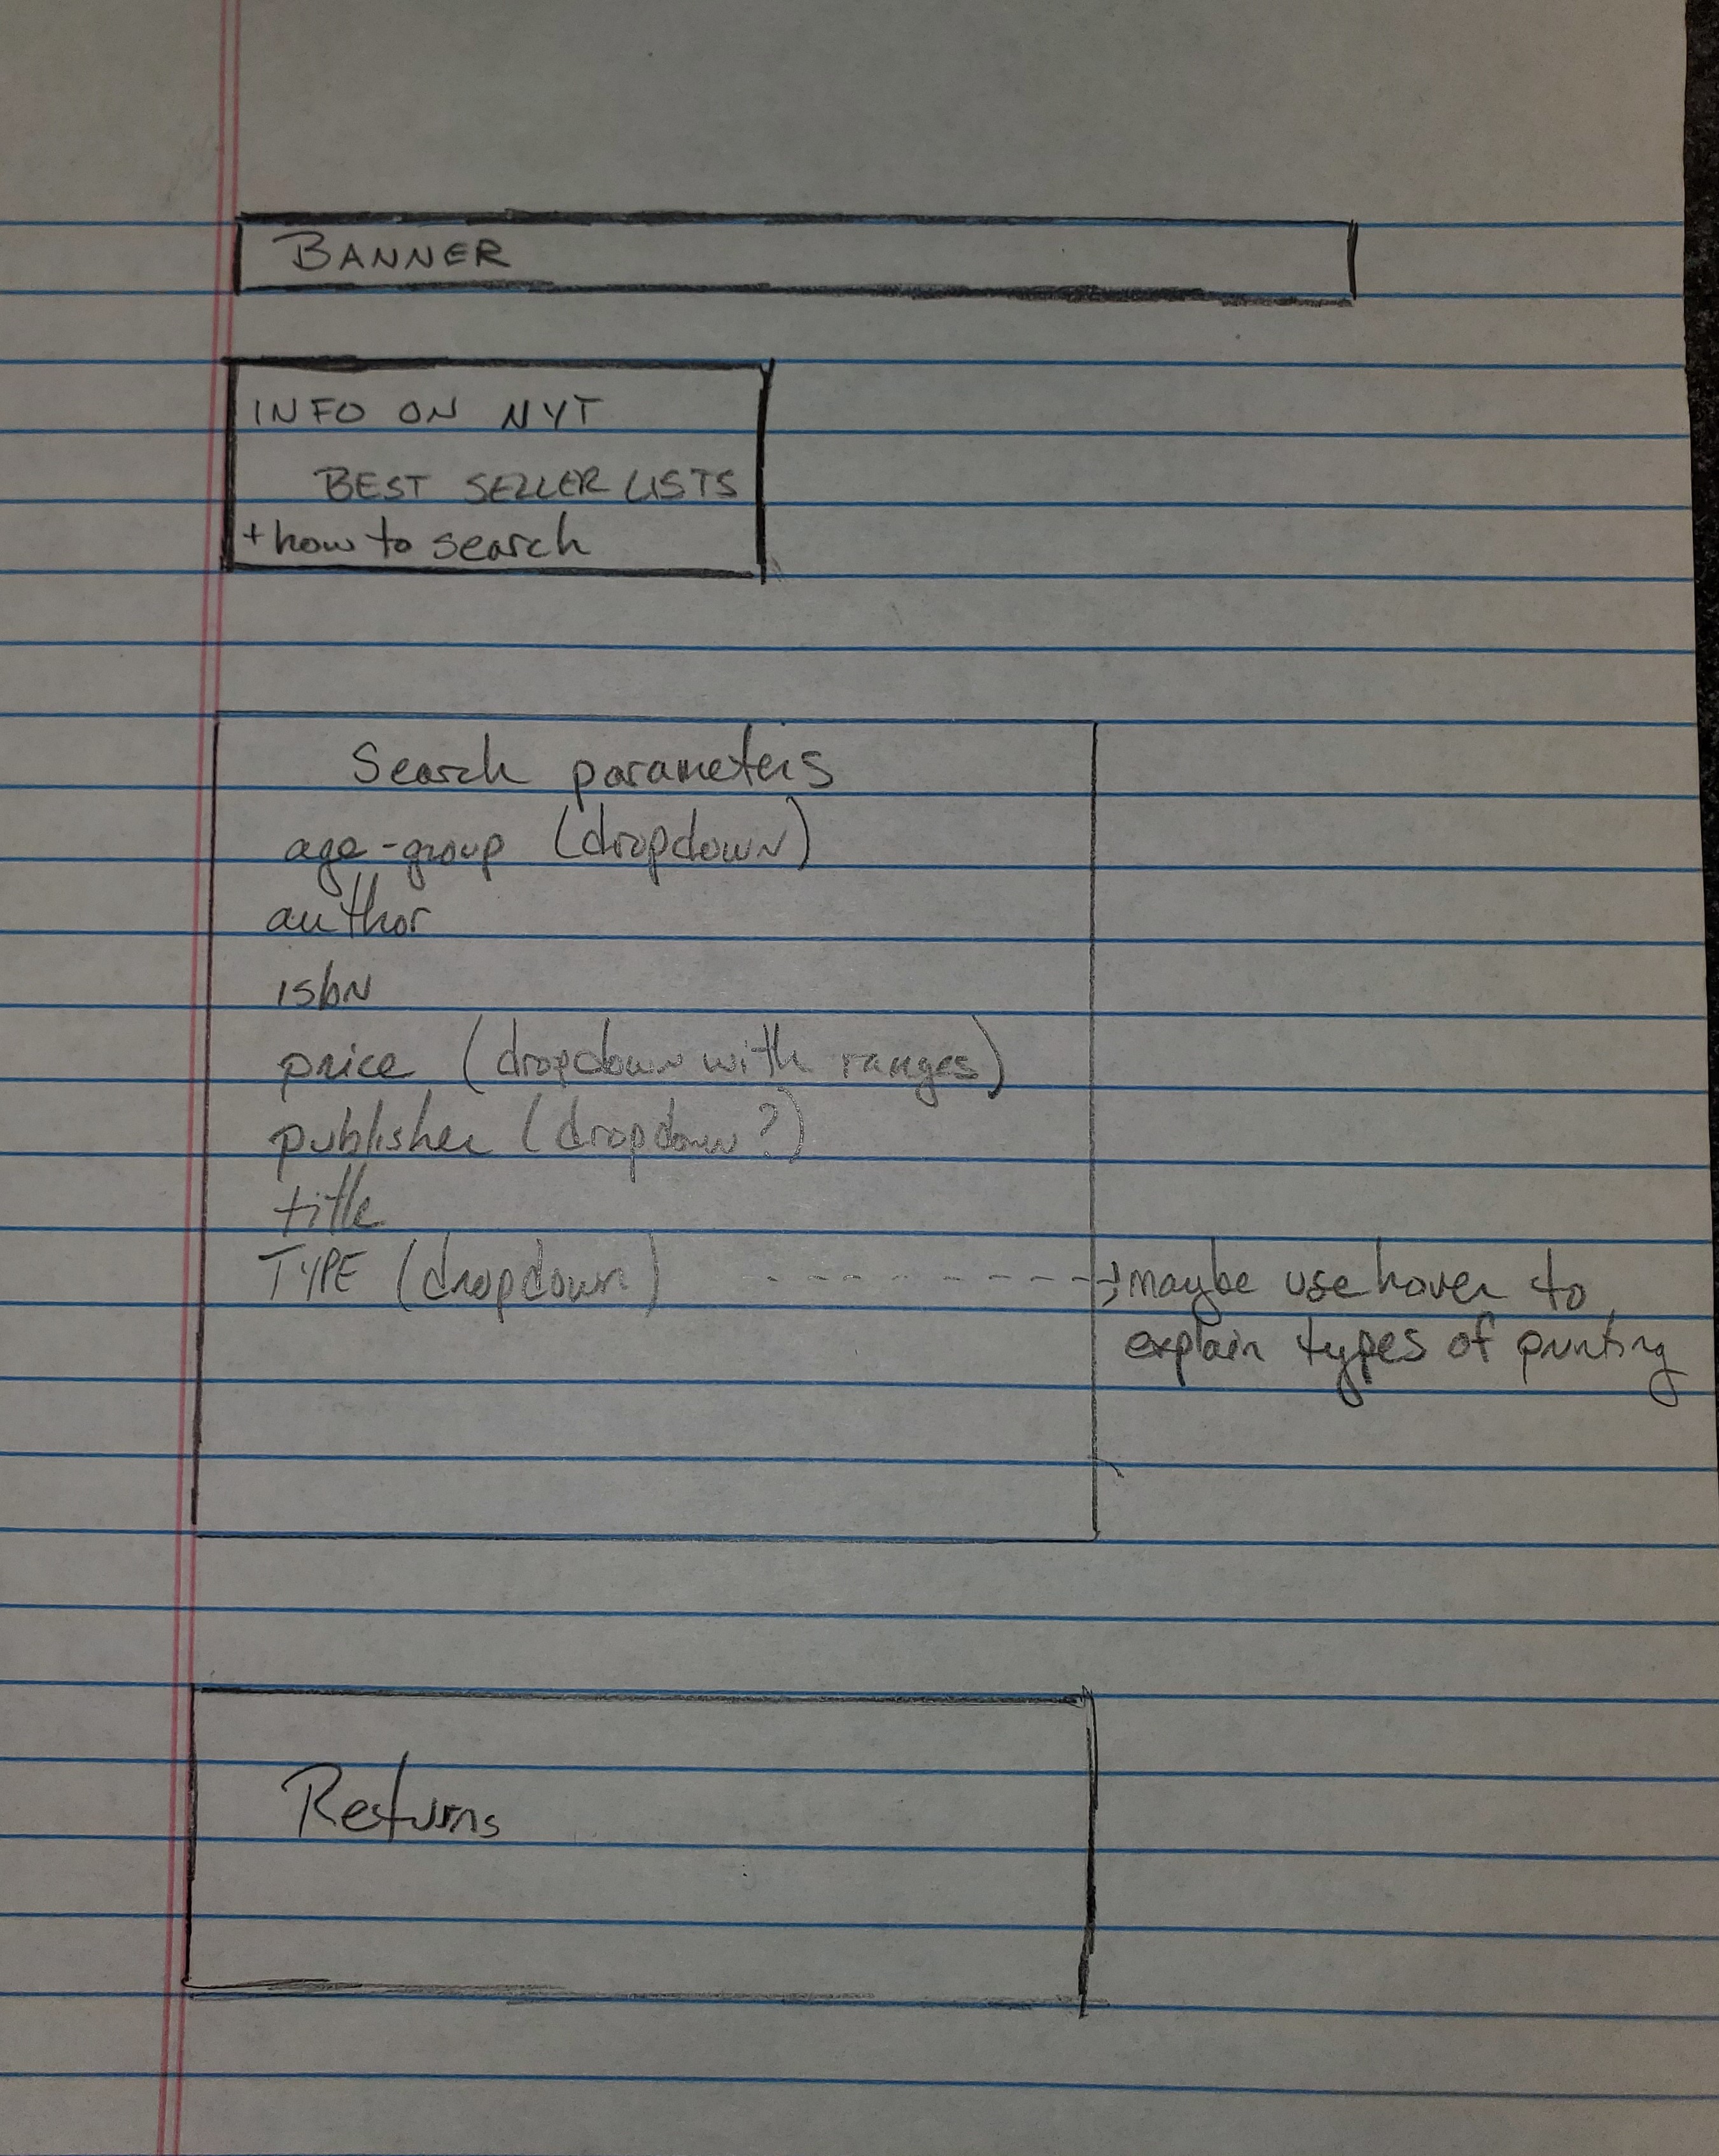 BANNER
INFO ON NYT
BEST SELLER LISTS
+ how to search
Search parameters
age-group (dropdown)
author
isbn
price (dropdown with ranges)
publisher (dropdown?)
title
TYPE (dropdown) - - - - - - - - → maybe use hover to
explain types of printing
Returns